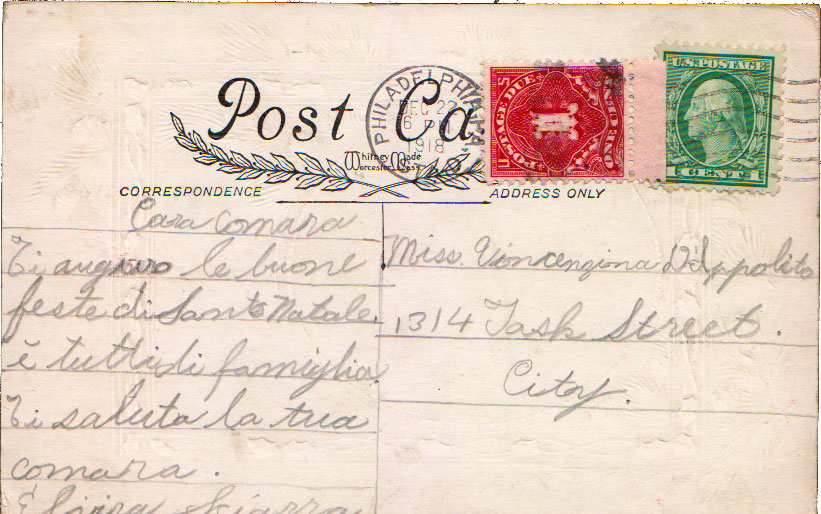 Post Ca
PHILADELPHIA, PA.
DEC 22
6 PM
1918
Whitney Made
Worcester, Mass
U.S. POSTAGE DUE
1
U.S. POSTAGE
1 CENT 1
CORRESPONDENCE
ADDRESS ONLY
Cara comara
Ti auguro le buone
feste di Santo Natale.
è tutti di famiglia
Ti saluta la tua
comara.
Elvira Sciarra
Miss. Vincenzina D'Ippolito
1314 Task Street.
City.